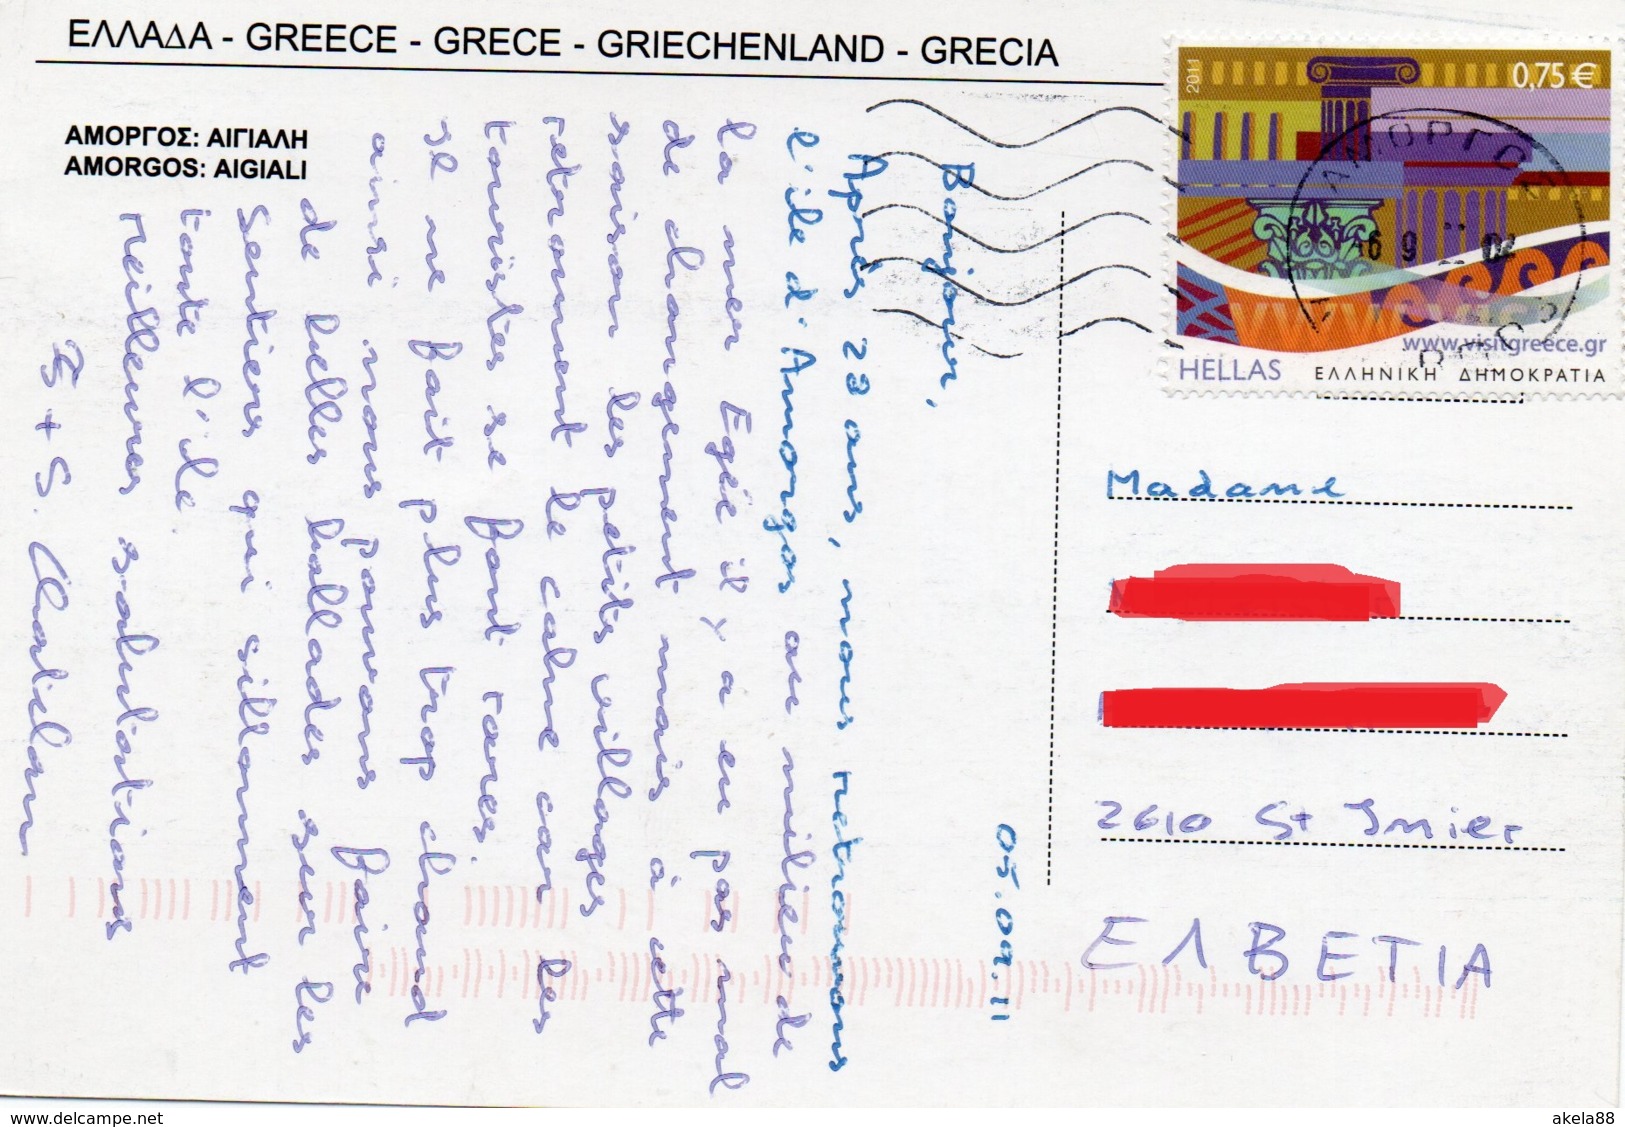 ΕΛΛΑΔΑ - GREECE - GRECE - GRIECHENLAND - GRECIA
ΑΜΟΡΓΟΣ: ΑΙΓΙΑΛΗ
AMORGOS: AIGIALI
05.09.11
Bonjour,
Après 23 ans, nous retrouvons
l'île d'Amorgos au milieu de
la mer Egée il y a eu pas mal
de changement mais à cette
saison les petits villages
retrouvent le calme car les
touristes se font rares.
Il ne fait plus trop chaud
ainsi nous pouvons faire
de belles ballades sur les
sentiers qui sillonnent
toute l'île.
Meilleures salutations
+ S.
2011
0,75 €
ΑΜΟΡΓΟΣ
6 9
www.visitgreece.gr
HELLAS ΕΛΛΗΝΙΚΗ ΔΗΜΟΚΡΑΤΙΑ
Madame
2610 St Imier
ΕΛΒΕΤΙΑ
www.delcampe.net
akela88